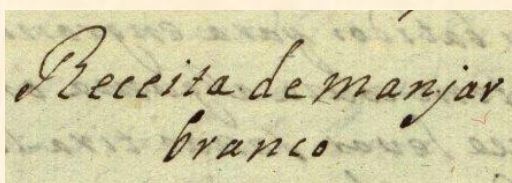 Receita de manjar
branco